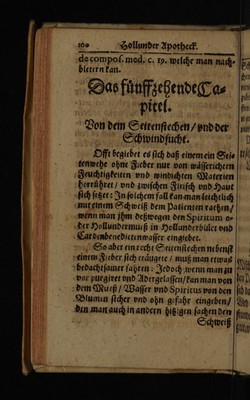 Hollunder Apotheck.
de compos. mod. c. 19. welche man nach-
bletern kan.
Das fünffzehende Ca-
pitel.
Von dem Seitenstechen / vnd der
Schwindsucht.
Offt begiebet es sich daß einem ein Sei-
tenwehe ohne Fieber nur von wässerichten
Feuchtigkeiten vnd windichten Materien
herrühret / vnd zwischen Fleisch vnd Haut
sich setzet: In solchem fall kan man leichtlich
mit einem Schweiß dem Patienten rathen /
wenn man ihm deßwegen den Spiritum o-
der Hollundermuß in Hollunderblüet vnd
Cardenbenedictenwasser eingiebet.
So aber ein recht Seitenstechen nebenst
einem Fieber sich eräugete / muß man etwas
bedachtsamer fahren: Jedoch / wenn man zu
vor purgiret vnd Adergelassen / kan man von
dem Mueß / Wasser vnd Spiritus von den
Blumen sicher vnd ohn gefahr eingeben /
den man auch in andern hitzigen sachen den
Schweiß